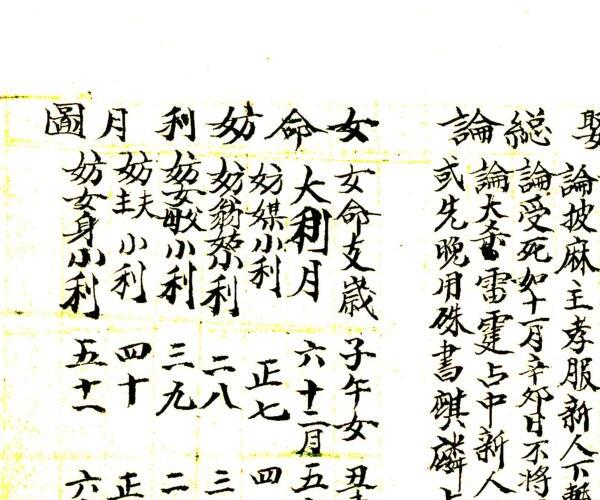 娶
總論
論披麻主孝服新人下
論受死如十一月辛卯日不將
論大雷霆占中新人
或先晚用硃書麒麟
女命妨利月圖
女命支歲 子午女 丑
大利月 六十二月 五
妨媒小利 正七 四
妨翁小利 二八 三
妨小利 三九 二
妨夫主小利 四十 正
妨女身小利 五十一 六